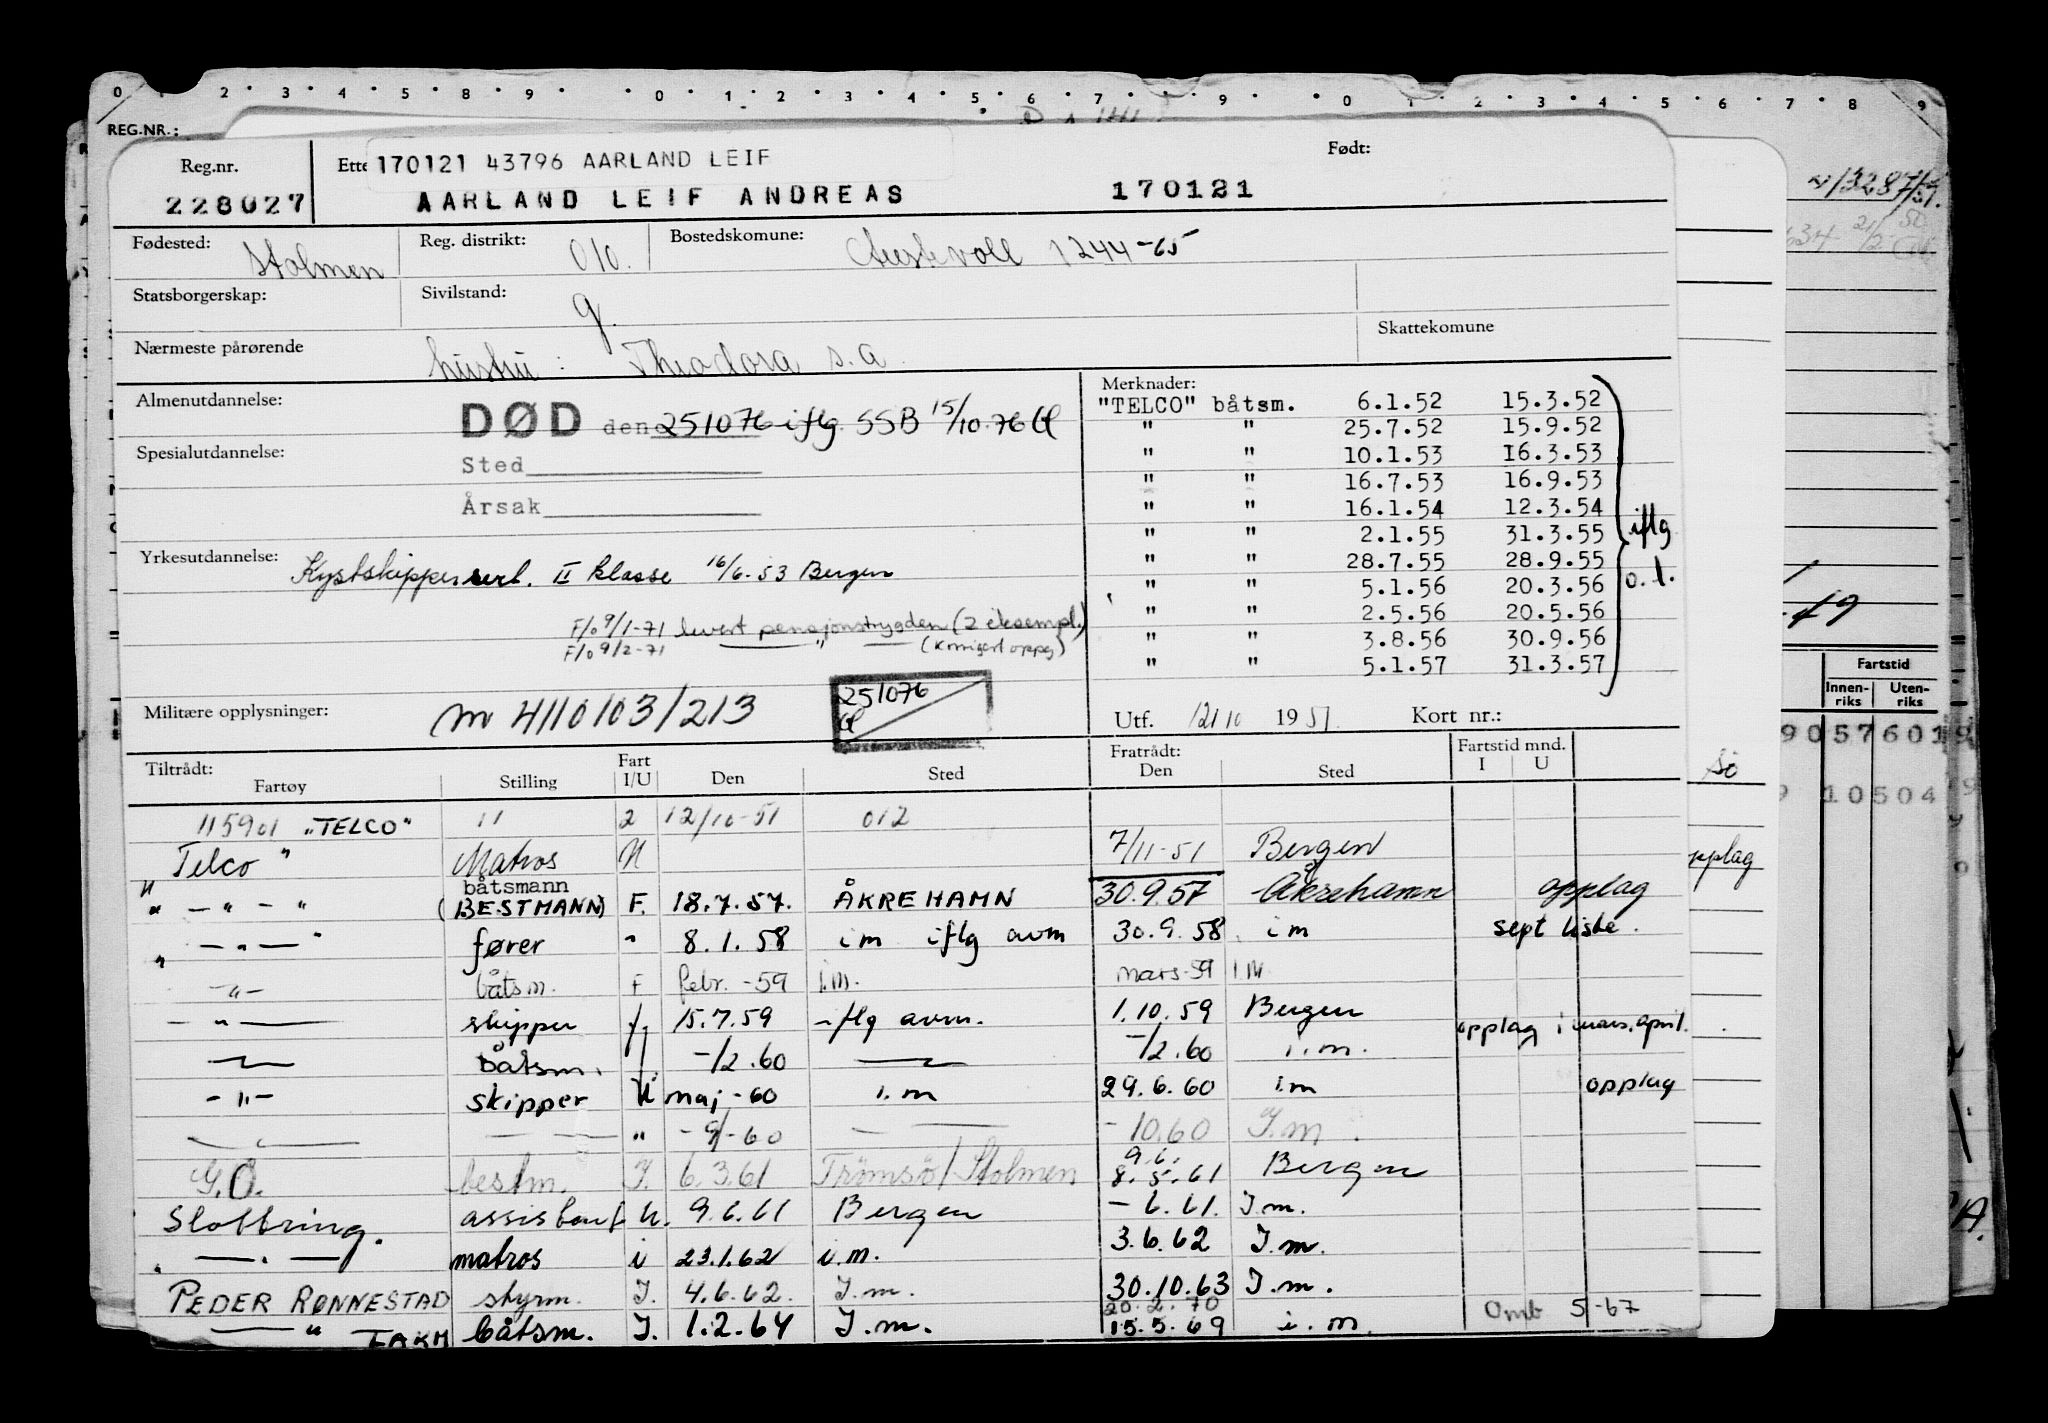 0 1 2 3 4 5 8 9 0 1 2 3 4 5 6 7 9 0 1 2 3 4 5 6 7 8 9
REG.NR.:
Reg.nr. Ette 170121 43796 AARLAND LEIF Født:
228027 AARLAND LEIF ANDREAS 170121
Fødested: Stolmen Reg. distrikt: 010. Bostedskomune: Austevoll 1244-65
Statsborgerskap: Sivilstand: g.
Skattekomune
Nærmeste pårørende hustru : Theodora s.a.
Almenutdannelse:
DØD den 251076 iflg. SSB 15/10.76
Spesialutdannelse:
Sted
Årsak
Yrkesutdannelse: Kystskippersert. II klasse 16/6.53 Bergen
F/o 9/1-71 levert pensjonstrygden (2 eksempl.)
F/o 9/2-71 " (Korrigert oppg)
Militære opplysninger: m 4110103/213
251076
Merknader:
"TELCO" båtsm. 6.1.52 15.3.52
" " 25.7.52 15.9.52
" " 10.1.53 16.3.53
" " 16.7.53 16.9.53
" " 16.1.54 12.3.54
" " 2.1.55 31.3.55
" " 28.7.55 28.9.55
" " 5.1.56 20.3.56
" " 2.5.56 20.5.56
" " 3.8.56 30.9.56
" " 5.1.57 31.3.57
iflg
o.l.
Utf. 12/10 1951. Kort nr.:
Tiltrådt: Fart Fratrådt: Fartstid mnd.
Fartøy Stilling I/U Den Sted Den Sted I U
115901 "TELCO" 11 2 12/10-51 012
Telco " Matros U 7/11-51 Bergen
" - " - " båtsmann (BESTMANN) F. 18.7.57. ÅKREHAMN 30.9.57 Åkrehamn opplag
" - " - " fører " 8.1.58 i m iflg avm 30.9.58. i m sept liste.
- " - båtsm. F febr. -59 i.m. mars-59 i.m.
- " - skipper f 15.7.59 iflg avm. 1.10.59 Bergen opplag i mars, april.
båtsm. f -/2.60 -/2.60 i.m.
- " - skipper U maj -60 i.m 29.6.60 i.m opplag
" -9/-60 -10.60 I.m.
G.O. bestm. I. 6.3.61 Tromsö/Stolmen 9.6. 8.5.61 Bergen
Slottring. assistent U. 9.6.61 Bergen - 6.61. I.m.
" matros i 23.1.62 i.m. 3.6.62 I.m.
PEDER RØNNESTAD styrm. I. 4.6.62. I.m. 30.10.63 I.m.
20.2.70
" båtsm. I. 1.2.64 I.m. 15.5.69 i.m. Omb 5-67
-49
Fartstid
Innen-riks Uten-riks
9057601
10504
opplag